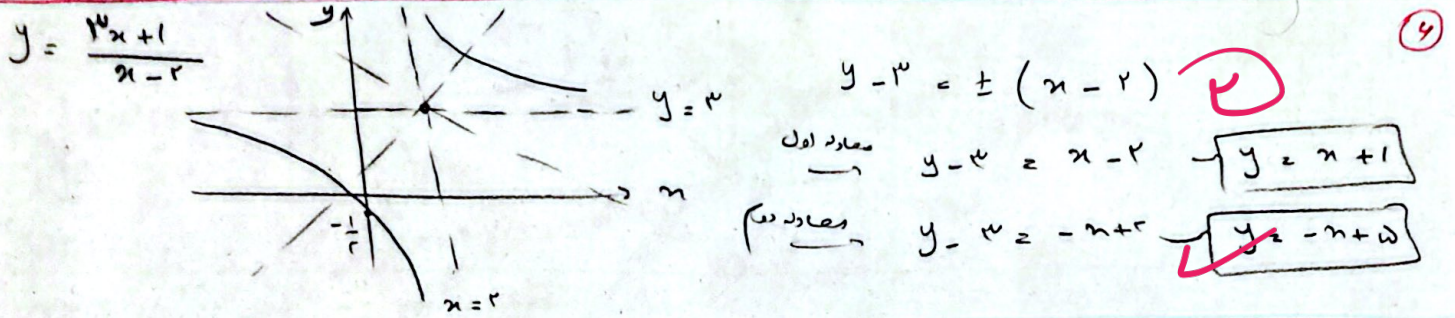 ۴
y = (۳x + ۱)/(x - ۲)
y
y = ۳
x
-۱/۲
x = ۲
y - ۳ = ± (x - ۲)
۲
معادله اول y - ۳ = x - ۲ → y = x + ۱
معادله دوم y - ۳ = -x + ۲ → y = -x + ۵